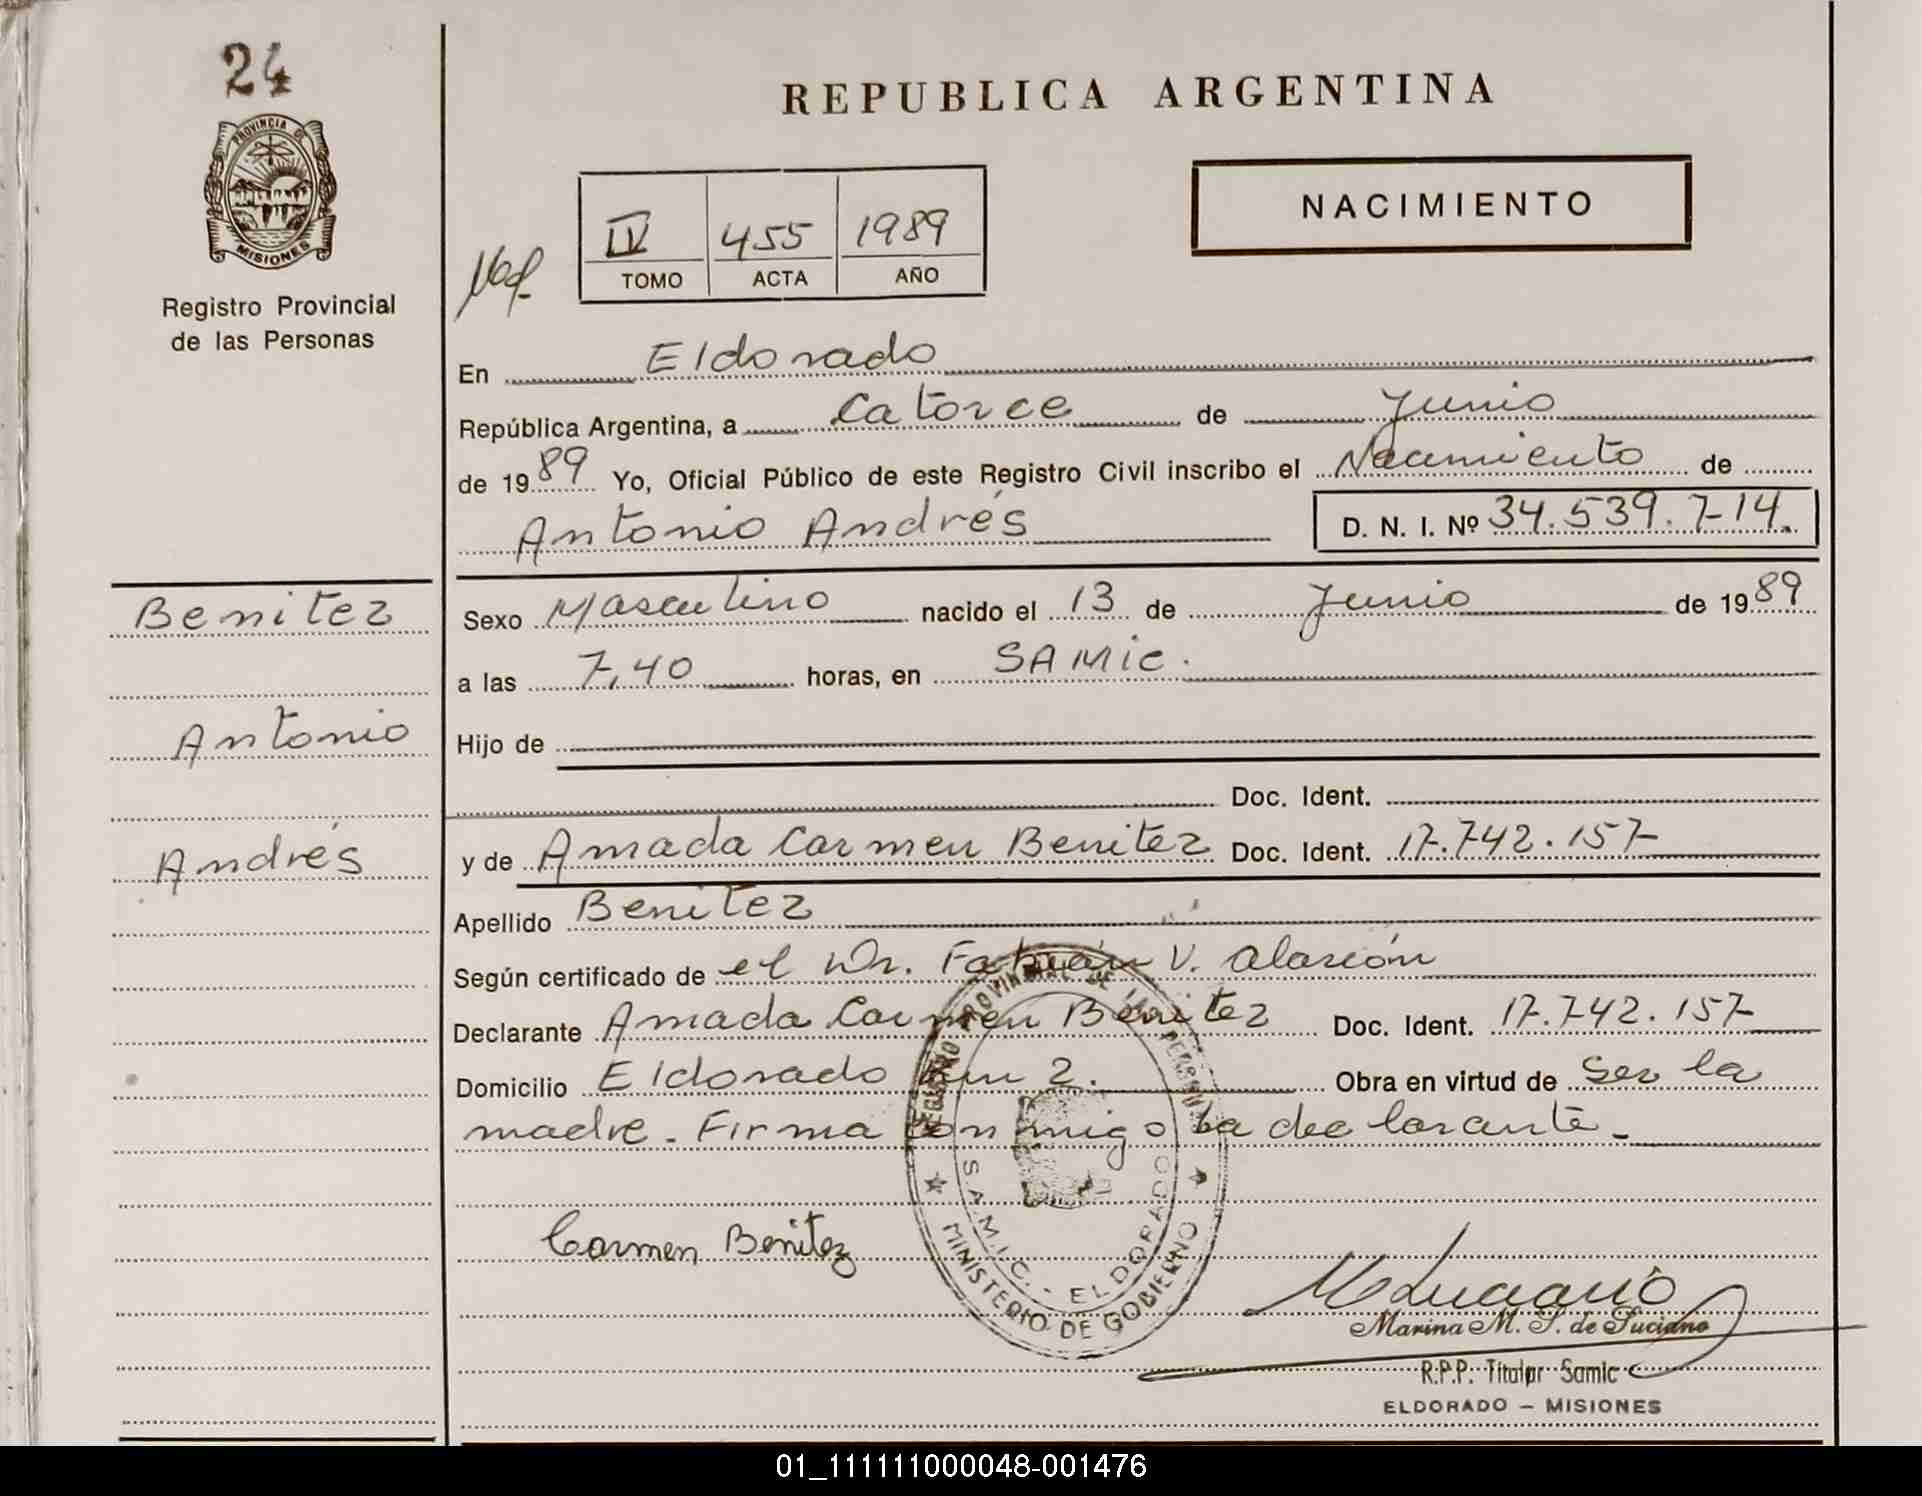 24
PROVINCIA DE
MISIONES
Registro Provincial
de las Personas
REPUBLICA ARGENTINA
NACIMIENTO
IV 455 1989
TOMO ACTA AÑO
En Eldorado
República Argentina, a Catorce de Junio
de 1989 Yo, Oficial Público de este Registro Civil inscribo el Nacimiento de
Antonio Andrés D. N. I. Nº 34.539.714.
Benitez
Antonio
Andrés
Sexo Masculino nacido el 13 de Junio de 1989
a las 7,40 horas, en SAMic.
Hijo de
Doc. Ident.
y de Amada Carmen Benitez Doc. Ident. 17.742.157
Apellido Benitez
Según certificado de el Dr. Fabián V. Alarcón
Declarante Amada Carmen Benitez Doc. Ident. 17.742.157
Domicilio Eldorado km 2. Obra en virtud de ser la
madre. Firma conmigo la declarante.
REGISTRO PROVINCIAL DE LAS PERSONAS
S.A.M.I.C. - ELDORADO
MINISTERIO DE GOBIERNO
Carmen Benitez
Marina M. S. de Luciano
R.P.P. Titular Samic
ELDORADO - MISIONES
01_111111000048-001476